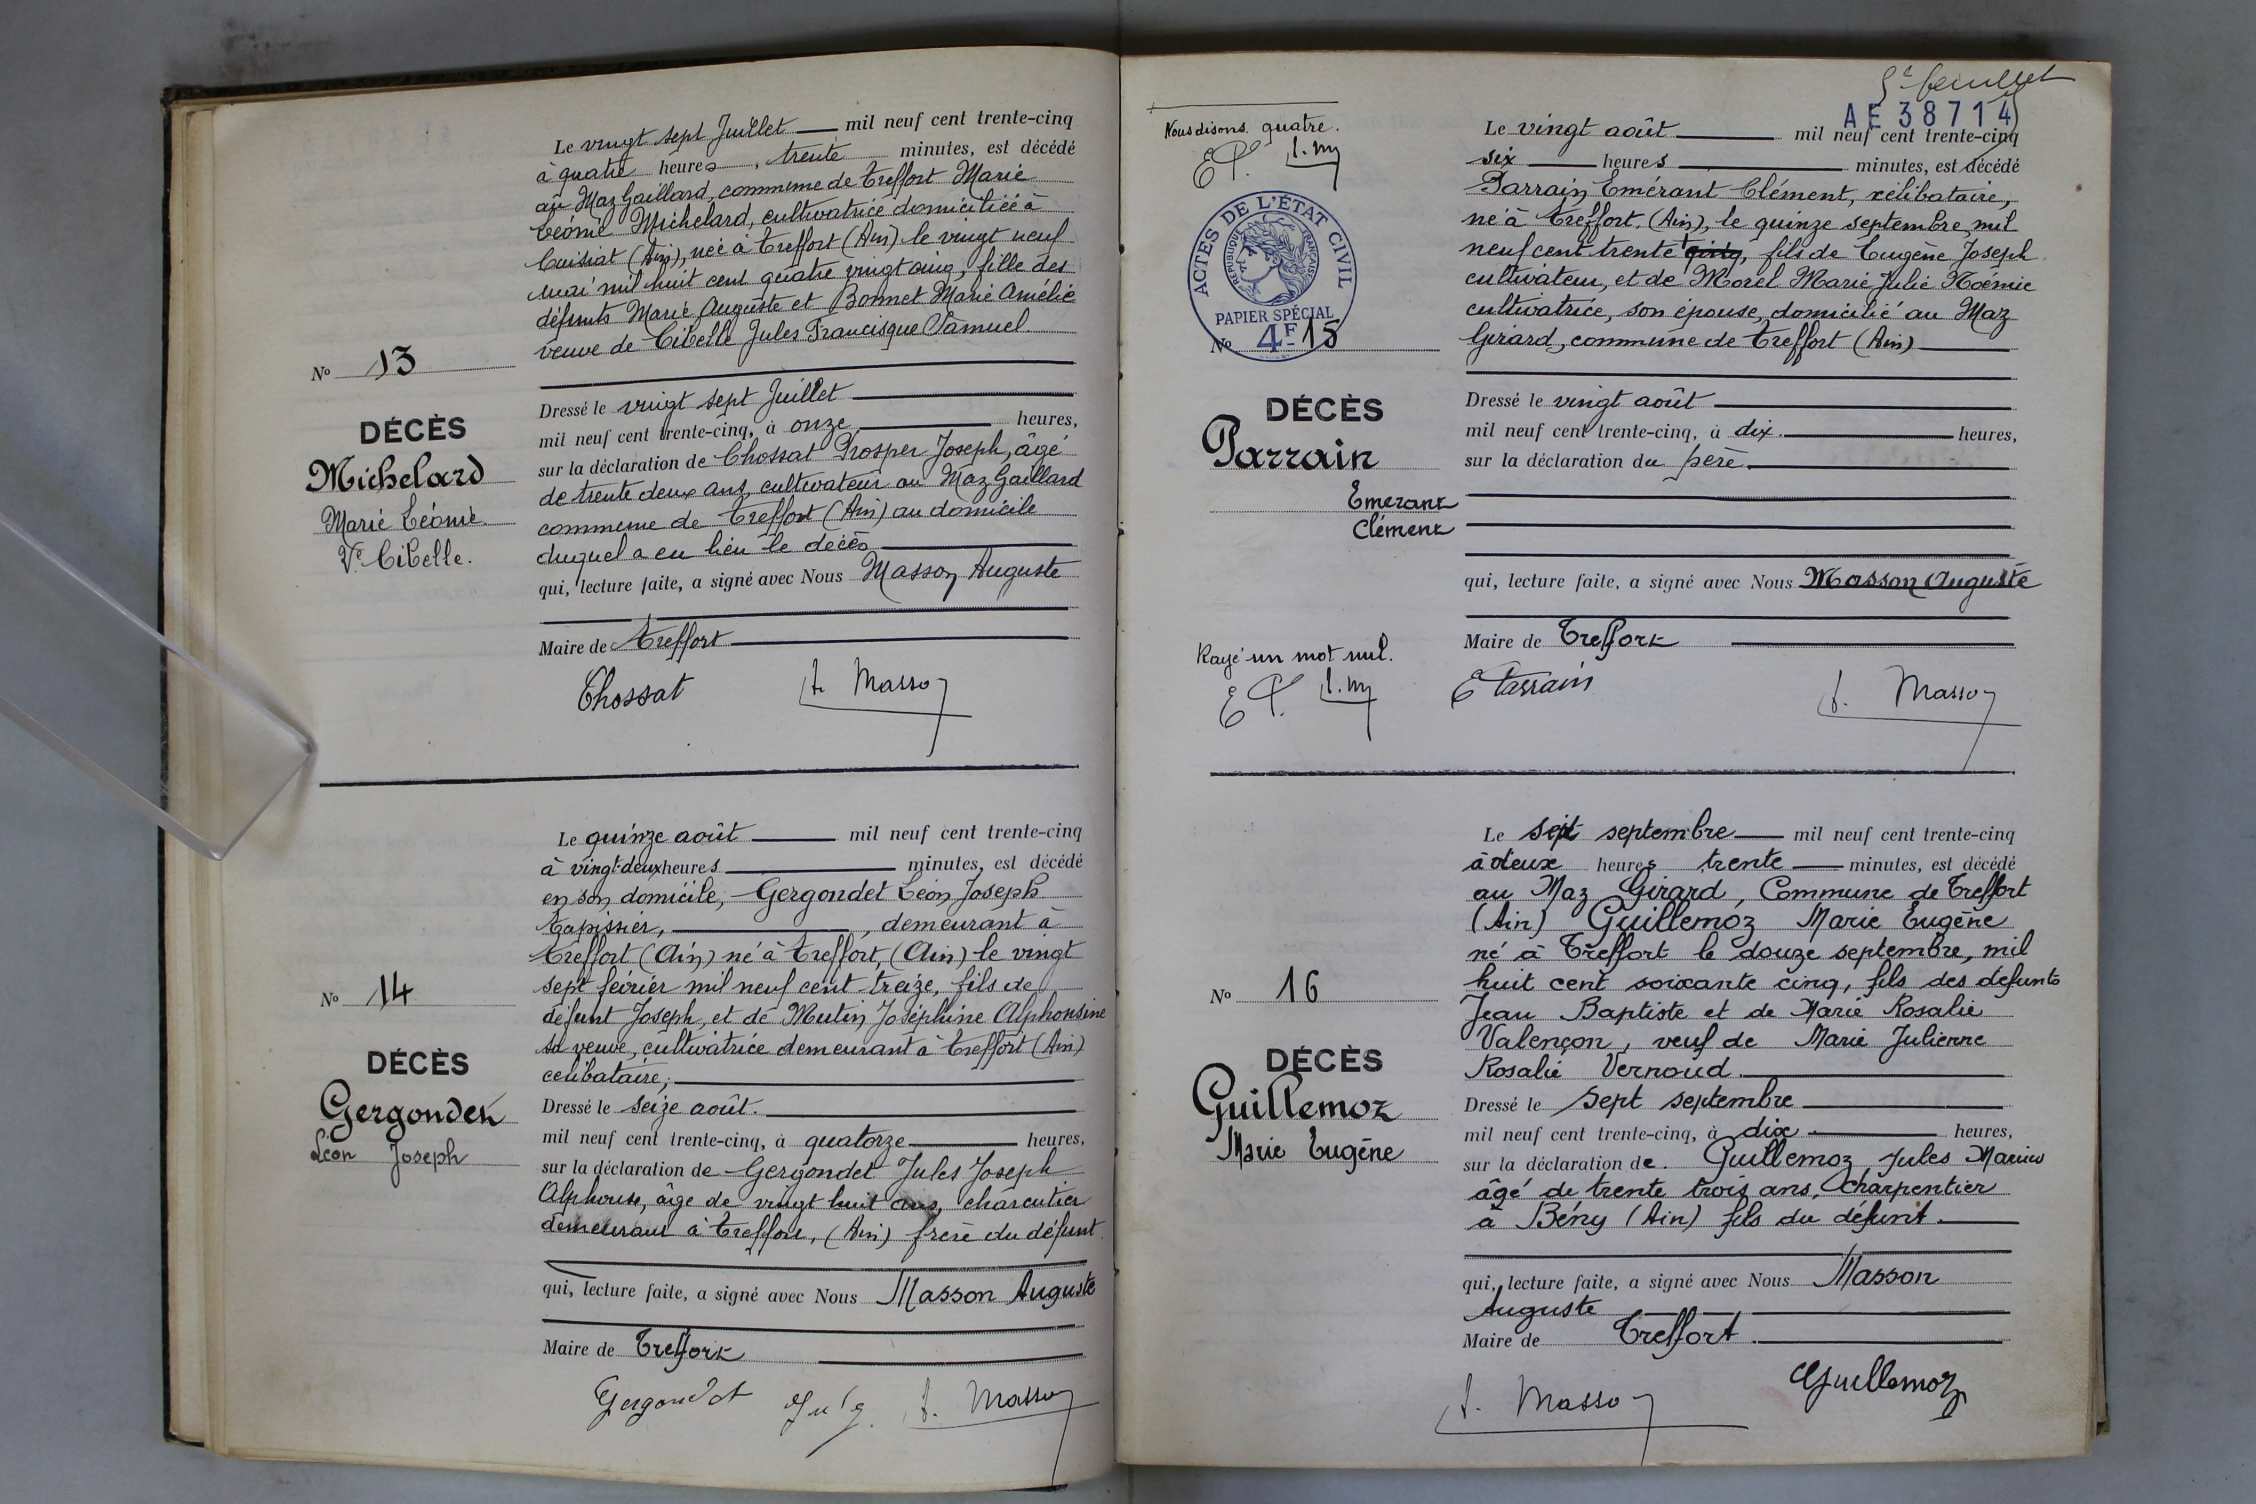 Le vingt sept Juillet mil neuf cent trente-cinq
à quatre heures, trente minutes, est décédé
au Maz Gaillard, commune de Treffort Marie
Léonie Michelard, cultivatrice domiciliée à
Cuisiat (Ain), née à Treffort (Ain) le vingt neuf
mai mil huit cent quatre vingt cinq, fille des
défunts Marie Auguste et Bonnet Marie Amélie
veuve de Cibelle Jules Francisque Samuel
No 13
DÉCÈS
Michelard
Marie Léonie
Ve Cibelle.
Dressé le vingt sept Juillet
mil neuf cent trente-cinq, à onze heures,
sur la déclaration de Chossat Prosper Joseph, âgé
de trente deux ans, cultivateur au Maz Gaillard
commune de Treffort (Ain) au domicile
duquel a eu lieu le décès
qui, lecture faite, a signé avec Nous Masson Auguste
Maire de Treffort
Chossat A. Masson
Le quinze août mil neuf cent trente-cinq
à vingt-deux heures minutes, est décédé
en son domicile, Gergondet Léon Joseph
tapissier, , demeurant à
Treffort (Ain) né à Treffort, (Ain) le vingt
sept février mil neuf cent treize, fils de
défunt Joseph, et de Mutin Joséphine Alphonsine
sa veuve, cultivatrice demeurant à Treffort (Ain)
célibataire,
No 14
DÉCÈS
Gergondet
Léon Joseph
Dressé le seize août.
mil neuf cent trente-cinq, à quatorze heures,
sur la déclaration de Gergondet Jules Joseph
Alphonse, âge de vingt huit ans, charcutier
demeurant à Treffort, (Ain) frère du défunt.
qui, lecture faite, a signé avec Nous Masson Auguste
Maire de Treffort
Gergondet A. Masson
5e feuillet
AE 38714
Nous disons quatre.
E P. A. M
Le vingt août mil neuf cent trente-cinq
six heures minutes, est décédé
Parrain Emérant Clément, célibataire,
né à Treffort, (Ain), le quinze septembre mil
neuf cent trente cinq, fils de Eugène Joseph
cultivateur, et de Morel Marie Julie Noémie
cultivatrice, son épouse, domicilié au Maz
Girard, commune de Treffort (Ain)
ACTES DE L'ÉTAT CIVIL
RÉPUBLIQUE FRANÇAISE
PAPIER SPÉCIAL
4F
No 15
DÉCÈS
Parrain
Emerant
Clément
Dressé le vingt août
mil neuf cent trente-cinq, à dix. heures,
sur la déclaration du père
qui, lecture faite, a signé avec Nous Masson Auguste
Maire de Treffort
Rayé un mot nul.
E P. A. M
E Parrain A. Masson
Le sept septembre mil neuf cent trente-cinq
à deux heures trente minutes, est décédé
au Maz Girard, Commune de Treffort
(Ain) Guillemoz Marie Eugène
né à Treffort le douze septembre, mil
huit cent soixante cinq, fils des defunts
Jean Baptiste et de Marie Rosalie
Valençon, veuf de Marie Julienne
Rosalie Vernoud.
No 16
DÉCÈS
Guillemoz
Marie Eugène
Dressé le sept septembre
mil neuf cent trente-cinq, à dix heures,
sur la déclaration de. Guillemoz Jules Marius
âgé de trente trois ans, charpentier
à Bény (Ain) fils du défunt.
qui, lecture faite, a signé avec Nous Masson
Auguste
Maire de Treffort.
A. Masson Guillemoz